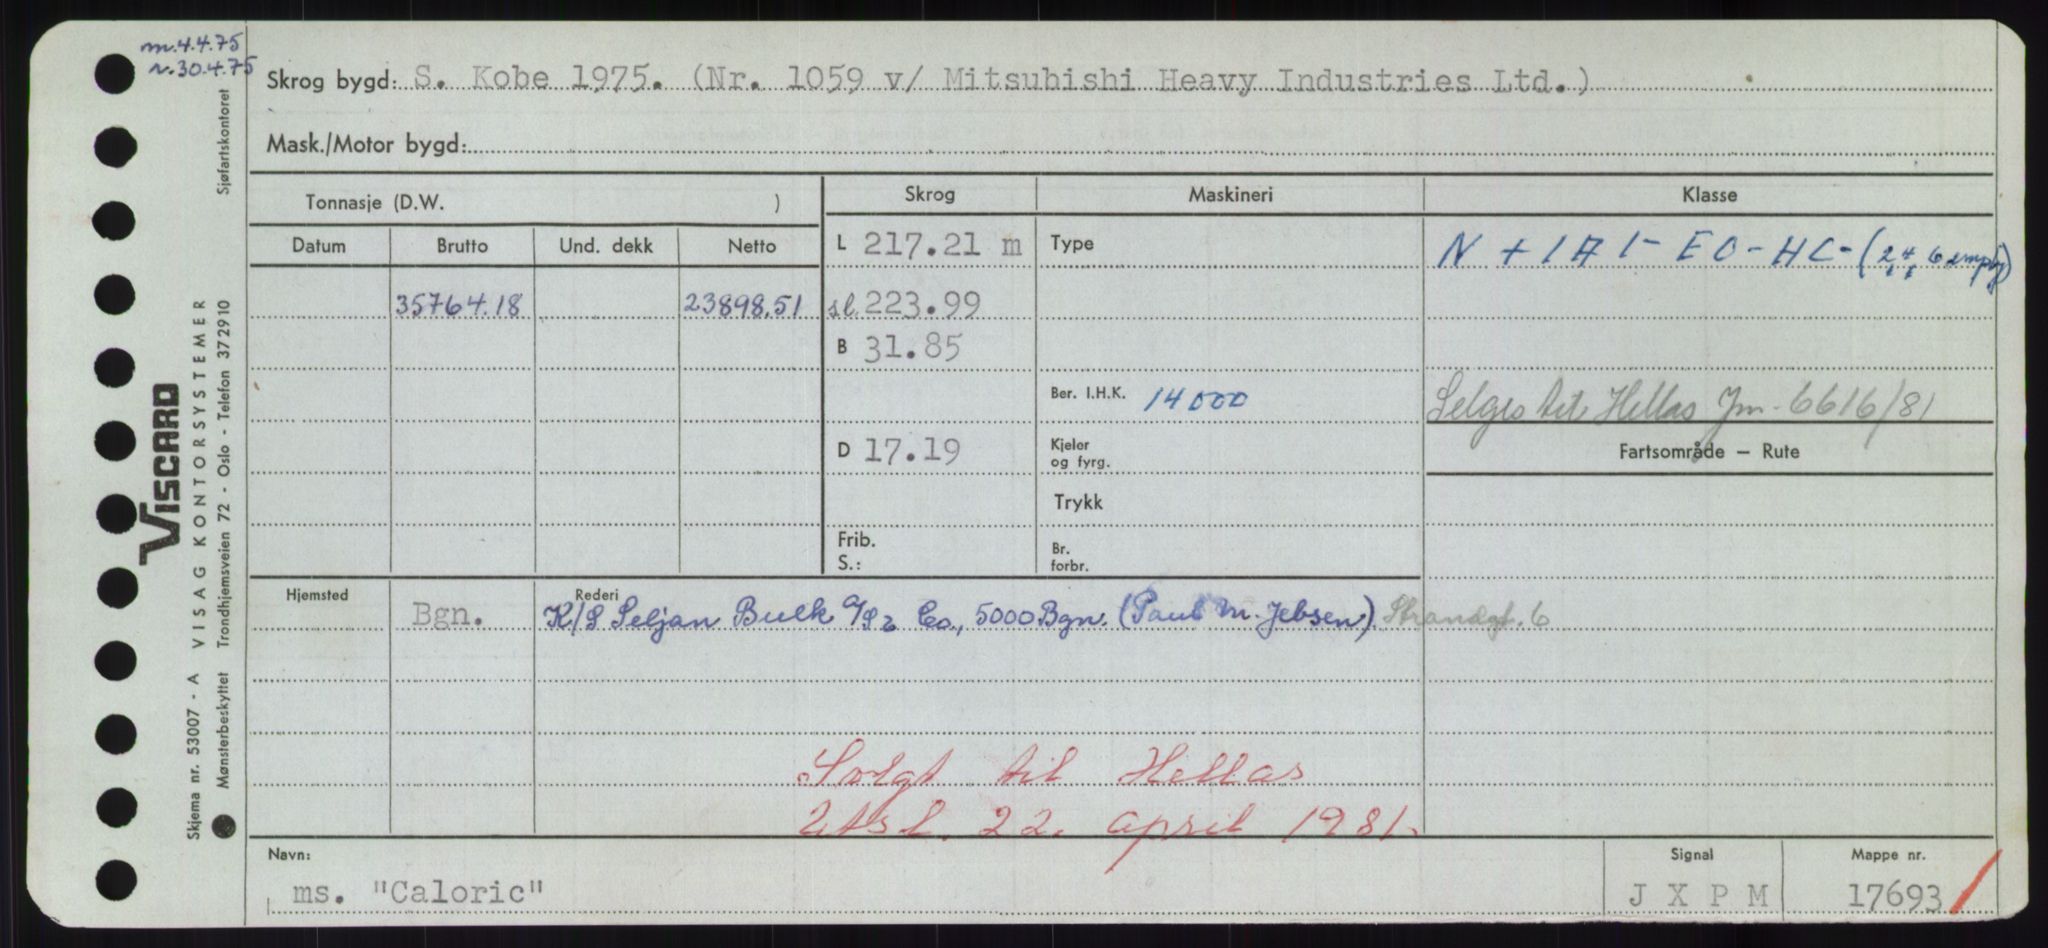 m.4.4.75
n.30.4.75
Skrog bygd: S. Kobe 1975. (Nr. 1059 v/ Mitsubishi Heavy Industries Ltd.)
Mask./Motor bygd:
Tonnasje (D.W. )
Skrog
Maskineri
Klasse
Datum Brutto Und. dekk Netto
L 217.21 m
Type
N + 1A1 - EO - HC - (2, 4, 6 empty)
35764.18 23898.51
sl. 223.99
B 31.85
Ber. I.H.K. 14000
Selges til Hellas Jm. 6616/81
D 17.19
Kjeler og fyrg.
Fartsområde — Rute
Trykk
Frib.
S.:
Br. forbr.
Hjemsted
Bgn.
Rederi
K/S Seljan Bulk A/S & Co., 5000 Bgn. (Paul M. Jebsen) Strandgt. 6
Solgt til Hellas
Utsl. 22. april 1981.
Navn:
ms. "Caloric"
Signal
J X P M
Mappe nr.
17693
VISCARD
VISAG KONTORSYSTEMER
Sjøfartskontoret
Trondhjemsveien 72 - Oslo - Telefon 372910
Skjema nr. 53007 - A
Mønsterbeskyttet